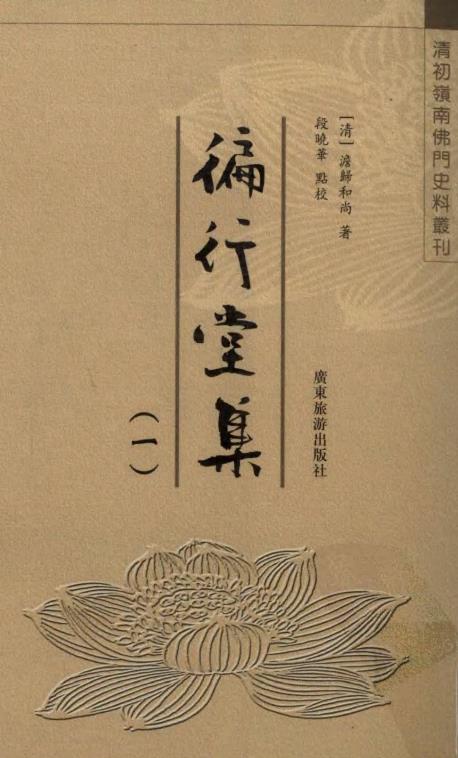 清初嶺南佛門史料叢刊
[清] 澹歸和尚 著
段曉華 點校
廣東旅游出版社
徧行堂集
(一)